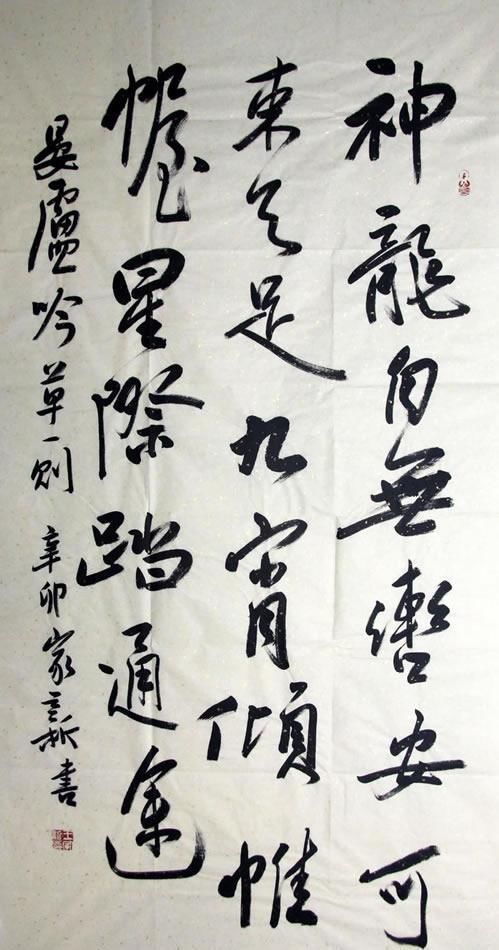 神龍自無轡安可
束之足九宵傾帷
幄星際踏通途
晏廬吟草一則 辛卯 家 書